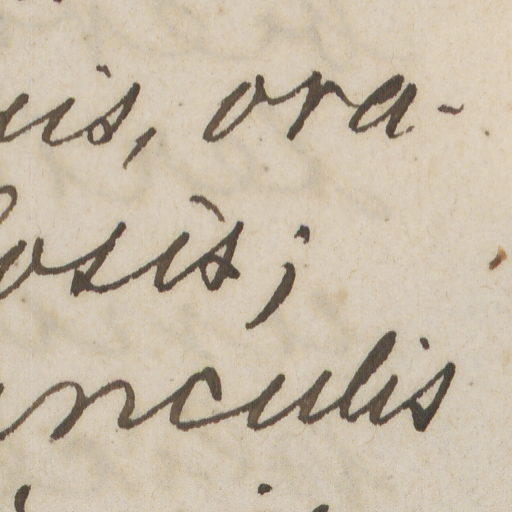 is, ora-
osis;
unculis